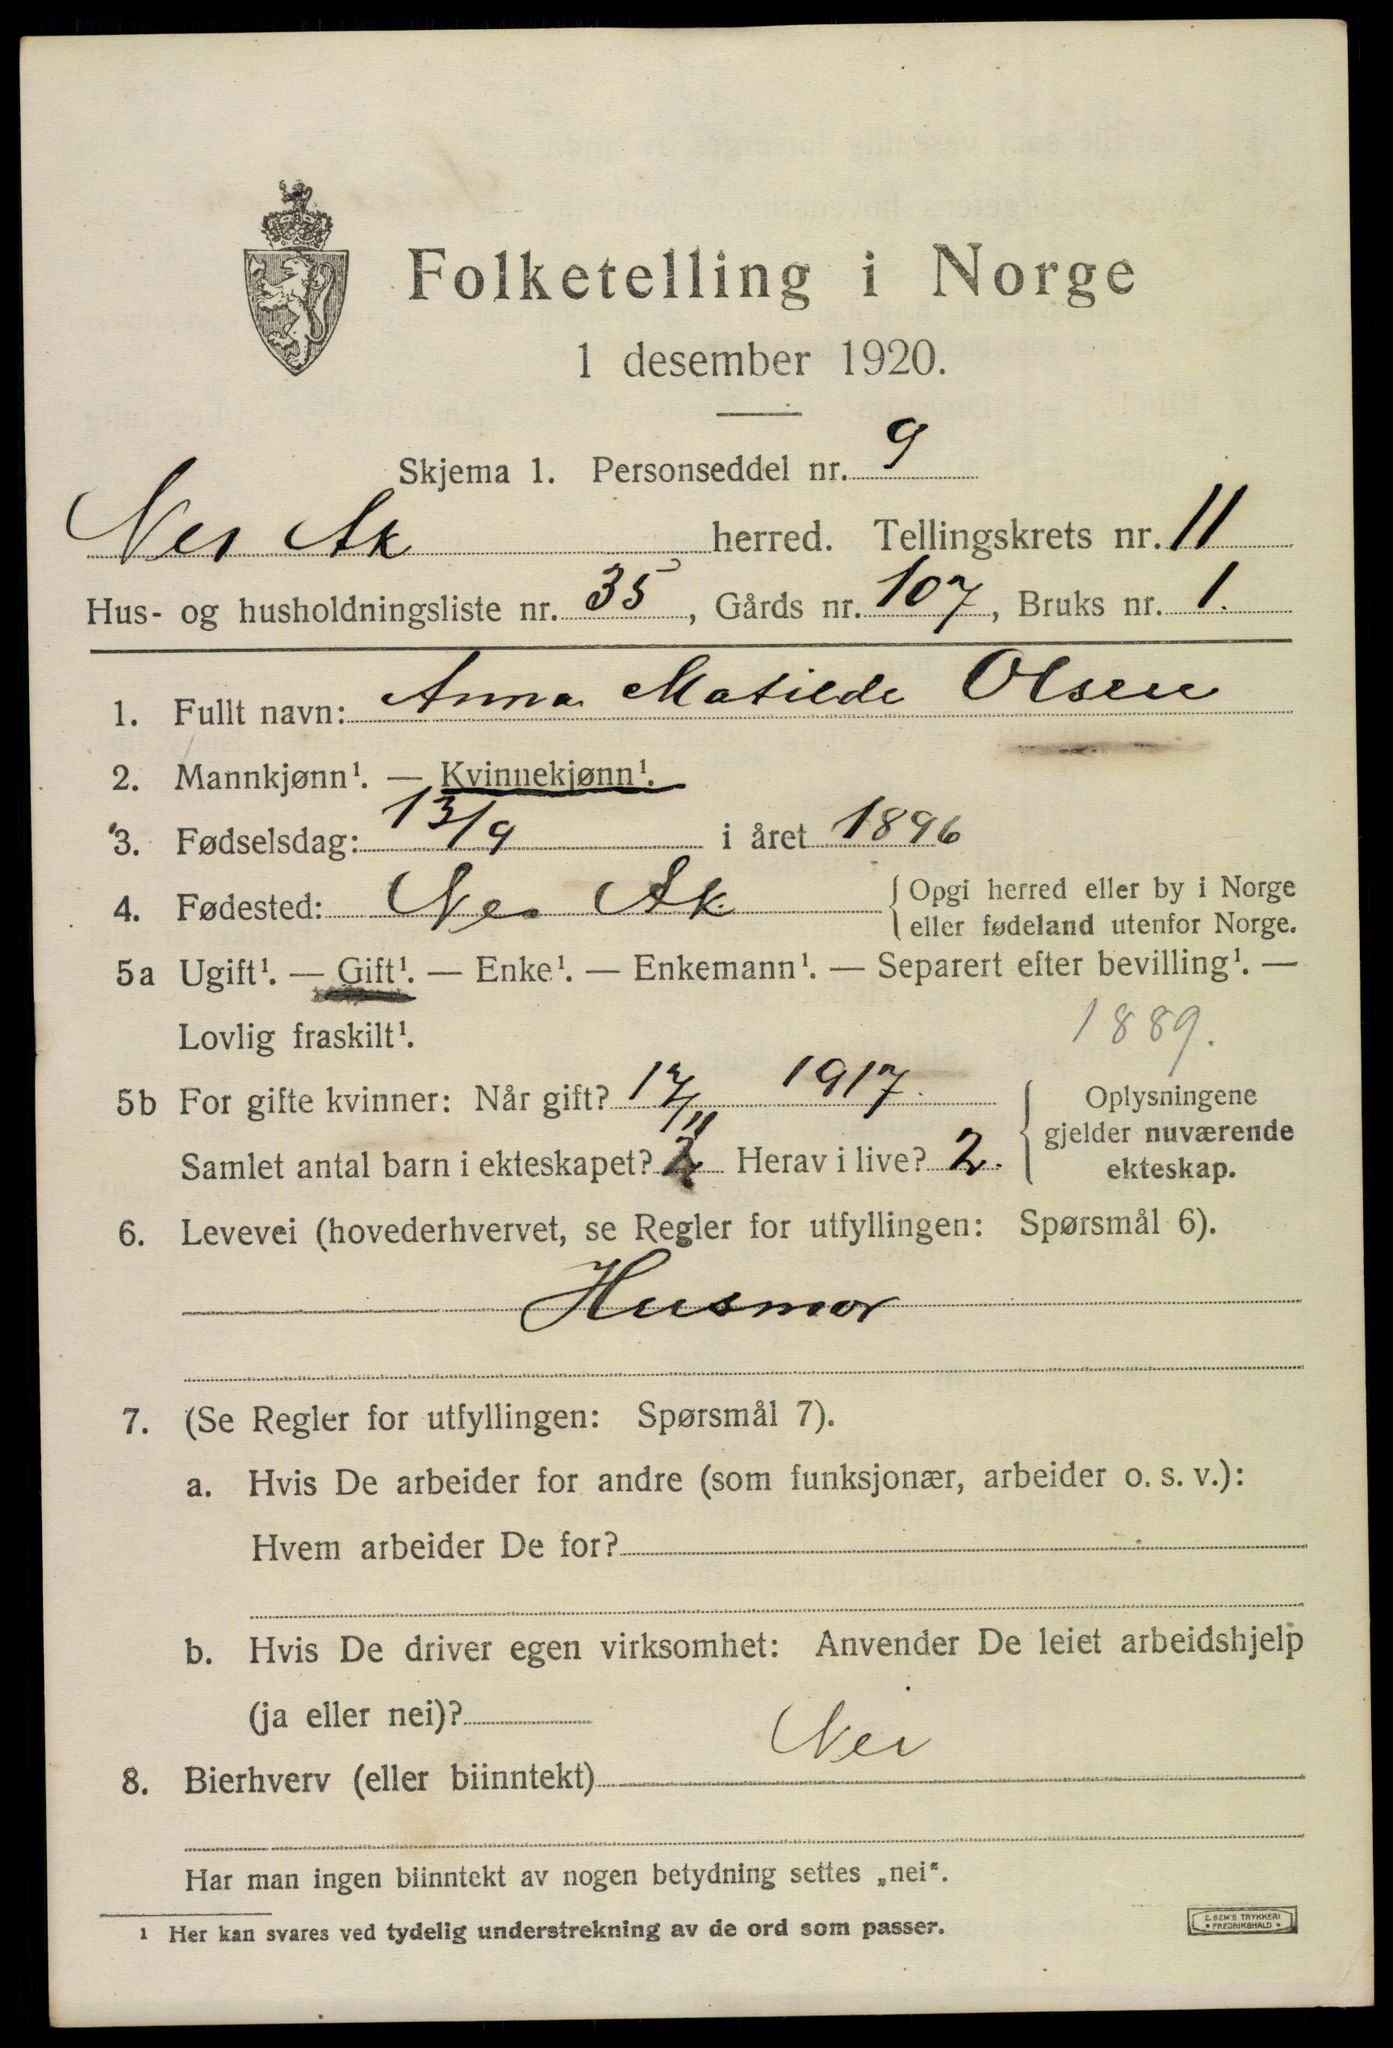 Folketelling i Norge
1 desember 1920.
Skjema 1. Personseddel nr. 9
Nes Ak herred. Tellingskrets nr. 11
Hus- og husholdningsliste nr. 35, Gårds nr. 107, Bruks nr. 1.
1. Fullt navn: Anna Matilde Olsen
2. Mannkjønn¹. — Kvinnekjønn¹.
3. Fødselsdag: 13/9 i året 1896
4. Fødested: Nes Ak. { Opgi herred eller by i Norge
eller fødeland utenfor Norge.
5a Ugift¹. — Gift¹. — Enke¹. — Enkemann¹. — Separert efter bevilling¹. —
Lovlig fraskilt¹.
1889.
5b For gifte kvinner: Når gift? 17/11 1917. { Oplysningene
gjelder nuværende
Samlet antal barn i ekteskapet? 2 Herav i live? 2.
ekteskap.
6. Levevei (hovederhvervet, se Regler for utfyllingen: Spørsmål 6).
Husmor
7. (Se Regler for utfyllingen: Spørsmål 7).
a. Hvis De arbeider for andre (som funksjonær, arbeider o. s. v.):
Hvem arbeider De for?
b. Hvis De driver egen virksomhet: Anvender De leiet arbeidshjelp
(ja eller nei)?
8. Bierhverv (eller biinntekt) Nei
Har man ingen biinntekt av nogen betydning settes „nei“.
¹ Her kan svares ved tydelig understrekning av de ord som passer.
E. SEM'S TRYKKERI
* FREDRIKSHALD *